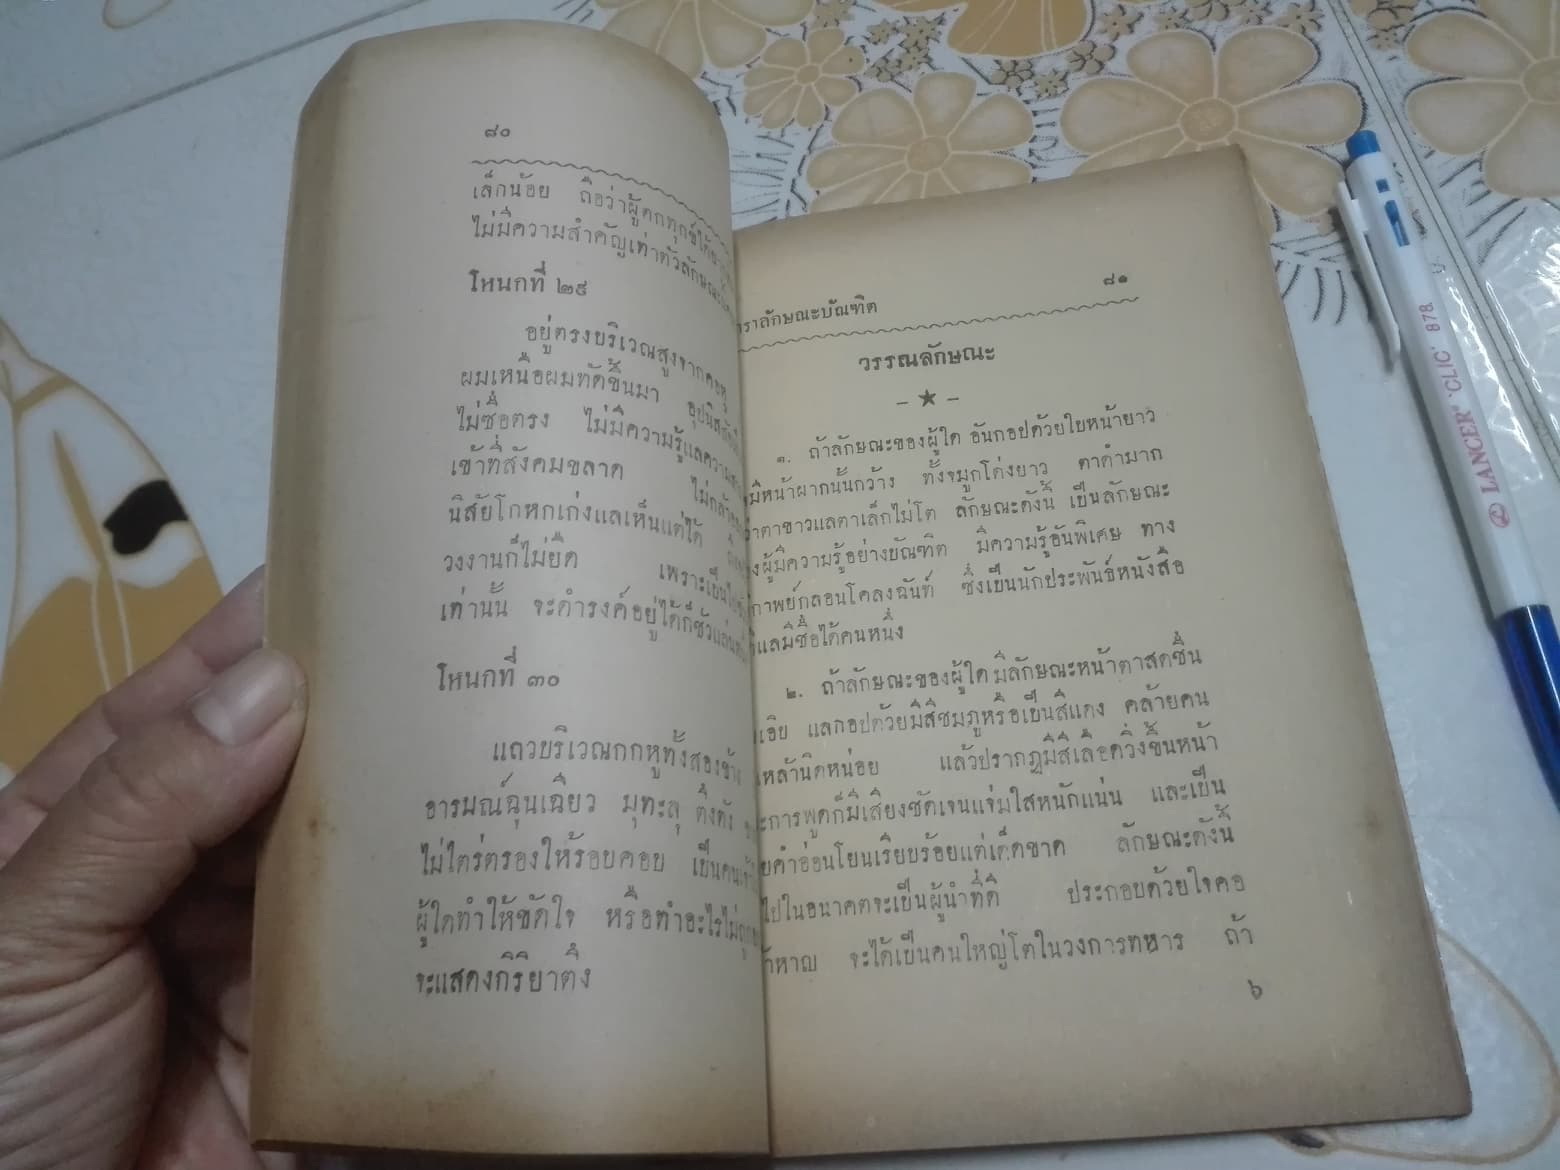 ๘๐
เล็กน้อย ถือว่าผู้ตกทุกข์ได้
ไม่มีความสำคัญเท่าตัวลักษณะ
โหนกที่ ๒๙
อยู่ตรงบริเวณสูงจากคอหู
ผมเหนือผมทัดขึ้นมา อุปนิสัย
ไม่ซื่อตรง ไม่มีความรู้แลความ
เข้าที่สังคมขลาด ไม่กล้า
นิสัยโกหกเก่งแลเห็นแต่ได้
วงงานก็ไม่ยืด เพราะเป็น
เท่านั้น จะดำรงค์อยู่ได้ก็ชั่วแล่น
โหนกที่ ๓๐
แถวบริเวณกกหูทั้งสองข้าง
อารมณ์ฉุนเฉียว มุทะลุ ตึงตัง
ไม่ไตร่ตรองให้รอยคอย เป็นคน
ผู้ใดทำให้ขัดใจ หรือทำอะไรไม่ถูก
จะแสดงกิริยาตึง
ลักษณะบัณฑิต ๘๑
วรรณลักษณะ
– ★ –
๑. ถ้าลักษณะของผู้ใด อันกอปด้วยใบหน้ายาว
มีหน้าผากนั้นกว้าง ทั้งจมูกโด่งยาว ตาดำมาก
ตาขาวแลตาเล็กไม่โต ลักษณะดังนี้ เป็นลักษณะ
ผู้มีความรู้อย่างบัณฑิต มีความรู้อันพิเศษ ทาง
กาพย์กลอนโคลงฉันท์ ซึ่งเป็นนักประพันธ์หนังสือ
แลมีชื่อได้คนหนึ่ง
๒. ถ้าลักษณะของผู้ใด มีลักษณะหน้าตาสดชื่น
แลกอปด้วยมีสีชมภูหรือเป็นสีแดง คล้ายคน
เหล้านิดหน่อย แล้วปรากฏมีสีเลือดวิ่งขึ้นหน้า
การพูดก็มีเสียงชัดเจนแจ่มใสหนักแน่น และเป็น
คำอ่อนโยนเรียบร้อยแต่เด็ดขาด ลักษณะดังนี้
ไปในอนาคตจะเป็นผู้นำที่ดี ประกอบด้วยใจคอ
หาญ จะได้เป็นคนใหญ่โตในวงการทหาร ถ้า
๖
LANCER 'CLIC' 878